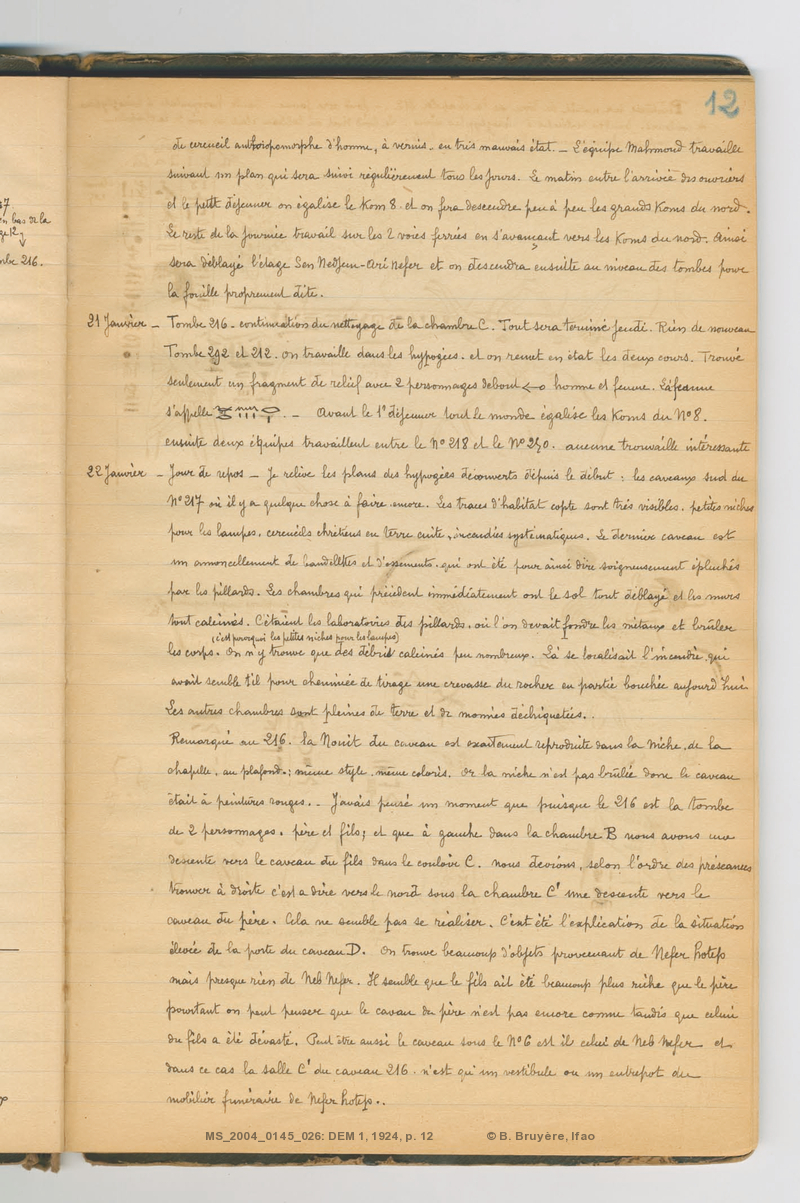 12
de cercueil anthropomorphe d'homme, à vernis - en très mauvais état. - L'équipe Mahmoud travaille
suivant un plan qui sera suivi régulièrement tous les jours. Le matin entre l'arrivée des ouvriers
et le petit déjeuner on égalise le Kom 8. et on fera descendre peu à peu les grands Koms du nord.
Le reste de la journée travail sur les 2 voies ferrées en s'avançant vers les Koms du nord. Ainsi
sera déblayé l'étage Sen Nedjem-Ari Nefer et on descendra ensuite au niveau des tombes pour
la fouille proprement dite.
21 Janvier - Tombe 216 - continuation du nettoyage de la chambre C. Tout sera terminé jeudi. Rien de nouveau
Tombe 292 et 212. on travaille dans les hypogées. et on remet en état les deux cours. Trouvé
seulement un fragment de relief avec 2 personnages debout ← homme et femme. La femme
s'appelle . - Avant le 1er déjeuner tout le monde égalise les Koms du N° 8.
ensuite deux équipes travaillent entre le N° 218 et le N° 290. aucune trouvaille intéressante
22 Janvier - Jour de repos - Je relève les plans des hypogées découverts depuis le début : les caveaux sud du
N° 217 où il y a quelque chose à faire encore. Les traces d'habitat copte sont très visibles. petites niches
pour les lampes, cercueils chrétiens en terre cuite, incendies systématiques. Le dernier caveau est
un amoncellement de bandelettes et d'ossements. qui ont été pour ainsi dire soigneusement épluchés
par les pillards. Les chambres qui précèdent immédiatement ont le sol tout déblayé et les murs
tout calcinés. C'étaient les laboratoires des pillards, où l'on devait fondre les métaux et brûler
(c'est pourquoi les petites niches pour les lampes)
les corps. On n'y trouve que des débris calcinés peu nombreux. Là se localisait l'incendie qui
avait semble t'il pour cheminée de tirage une crevasse du rocher en partie bouchée aujourd'hui
Les autres chambres sont pleines de terre et de momies déchiquetées..
Remarqué au 216. la Nouit du caveau est exactement reproduite dans la niche, de la
chapelle, au plafond.; même style. même coloris. Or la niche n'est pas brûlée donc le caveau
était à peintures rouges.. J'avais pensé un moment que puisque le 216 est la tombe
de 2 personnages. père et fils; et que à gauche dans la chambre B nous avons une
descente vers le caveau du fils dans le couloir C. nous devions, selon l'ordre des préséances
trouver à droite c'est à dire vers le nord sous la chambre C' une descente vers le
caveau du père. Cela ne semble pas se réaliser. C'eut été l'explication de la situation
élevée de la porte du caveau D. On trouve beaucoup d'objets provenant de Nefer hotep
mais presque rien de Neb Nefer. Il semble que le fils ait été beaucoup plus riche que le père
pourtant on peut penser que le caveau du père n'est pas encore connu tandis que celui
du fils a été dévasté. Peut être aussi le caveau sous le N° 6 est il celui de Neb Nefer et
dans ce cas la salle C' du caveau 216. n'est qu'un vestibule ou un entrepôt du
mobilier funéraire de Nefer hotep..
MS_2004_0145_026: DEM 1, 1924, p. 12 © B. Bruyère, Ifao